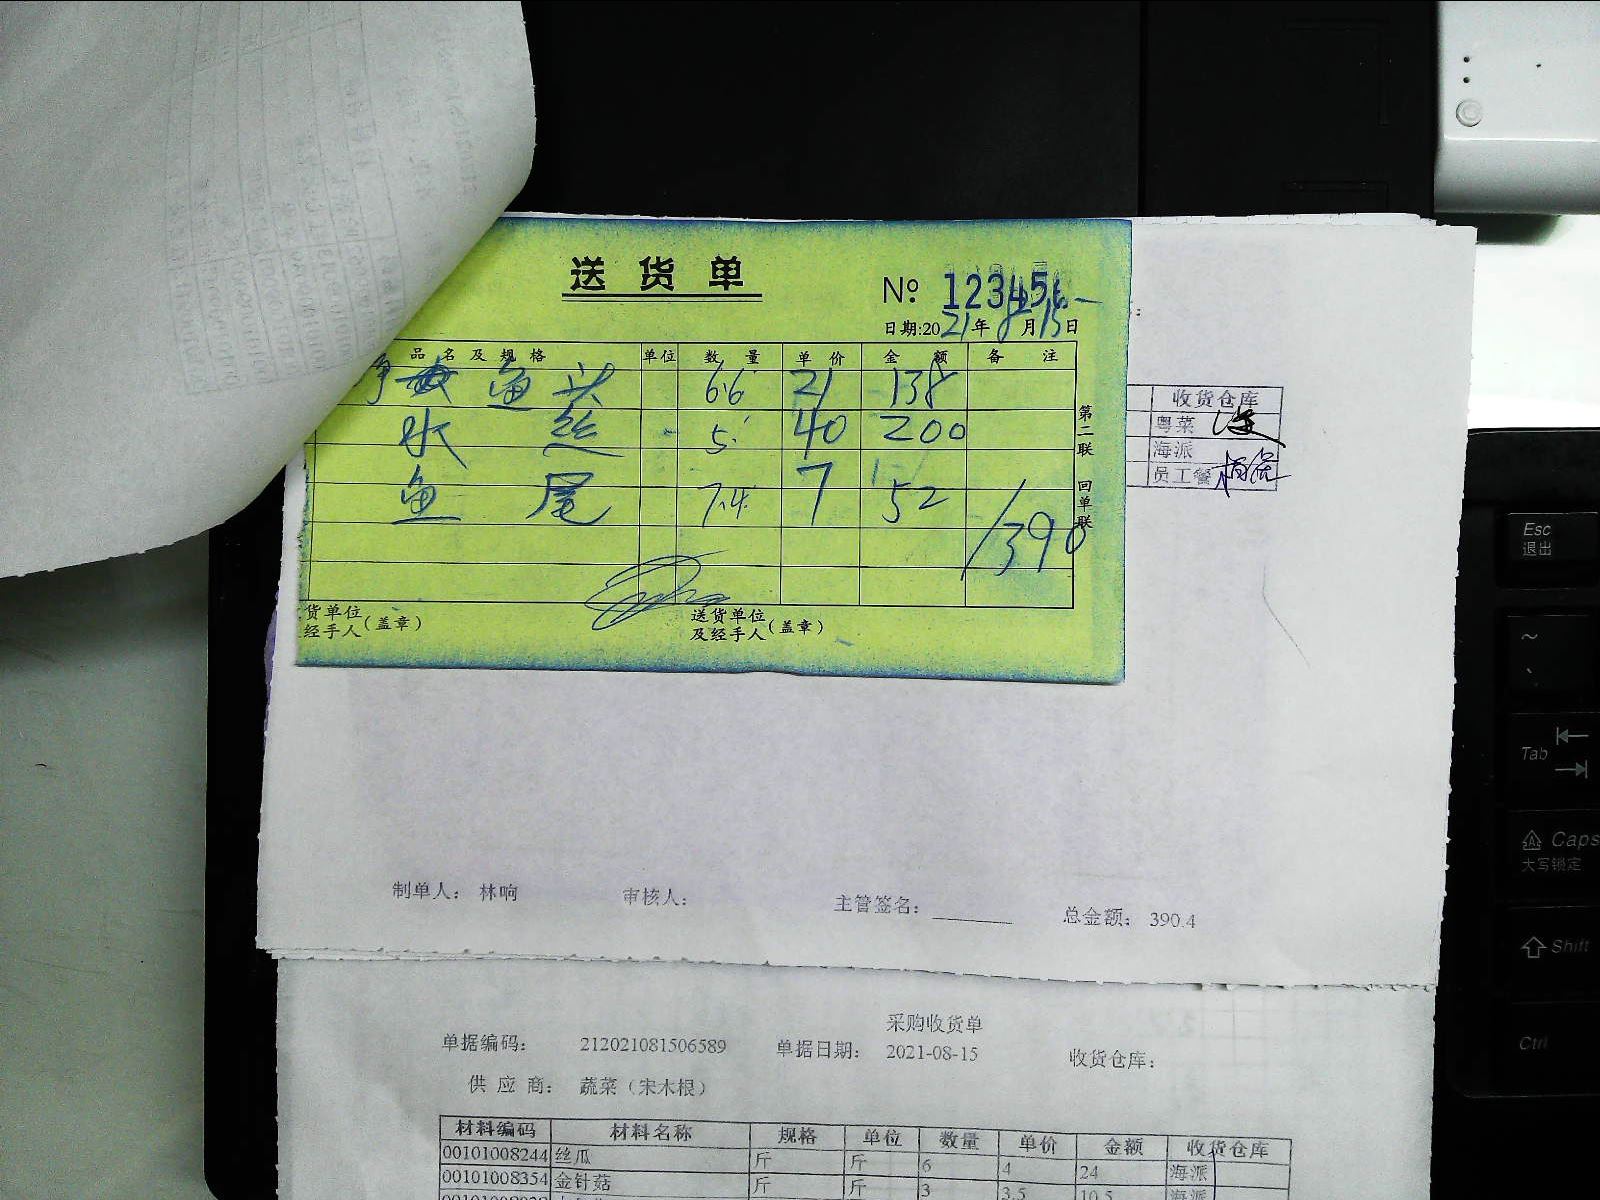 送货单
№ 123456
日期:2021年8月15日
品名及规格 单位 数量 单价 金额 备注
净 鱼头 6.6 21 138
水 丝 5 40 200
鱼 尾 7.4 7 52
/390
第二联 回单联
货单位
经手人(盖章)
送货单位
及经手人(盖章)
收货仓库
粤菜
海派
员工餐
制单人: 林响 审核人: 主管签名: 总金额: 390.4
采购收货单
单据编码: 212021081506589 单据日期: 2021-08-15 收货仓库:
供应商: 蔬菜(宋木根)
材料编码 材料名称 规格 单位 数量 单价 金额 收货仓库
00101008244 丝瓜 斤 斤 6 4 24 海派
00101008354 金针菇 斤 斤 3 3.5 10.5 海派
Esc
退出
~
Tab
Caps
大写锁定
Shift
Ctrl